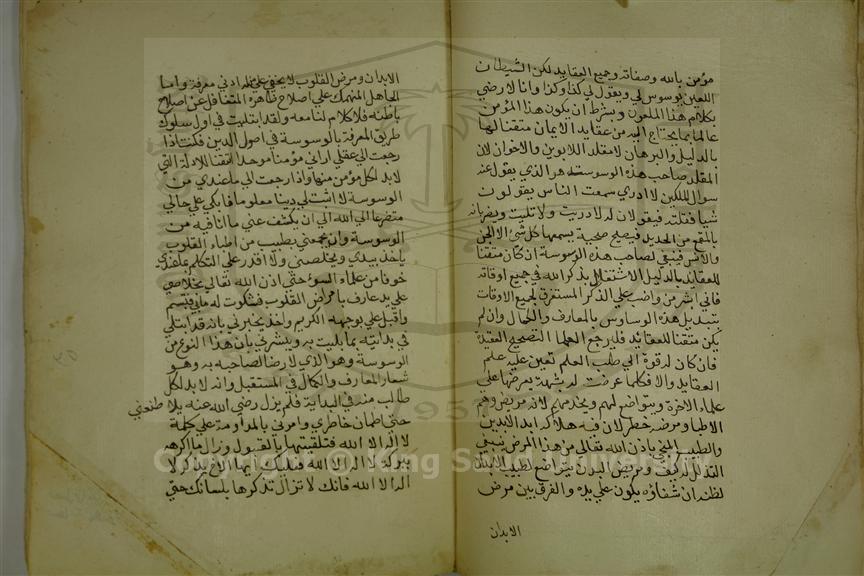 مؤمن بالله وصفاته وجميع العقايد لكن الشيطان
اللعين يوسوس لي ويقول لي كذا وكذا وانا لا رضي
بكلام هذا الملعون وبشرط ان يكون هذا المؤمن
عالما بما يحتاج اليه من عقايد الايمان متقنا لها
بالدليل والبرهان لا مقلدا للابوين والاخوان لان
المقلد صاحب هذه الوسوسة هو الذي يقول عند
سوال الملكين لا ادري سمعت الناس يقولون
شيا فقلته فيقولان له لا دريت ولا تليت ويضربانه
بالمقمع من الحديد فيصيح صيحة يسمعها كل شئ الا الجن
والانس فينبغي لصاحب هذه الوسوسة ان كان متقنا
للعقايد بالدليل الاشتغال بذكر الله في جميع اوقاته
فاني ابشر من واضب علي الذكر المستغرق لجميع الاوقات
بتبديل هذه الوساوس بالمعارف والكمال وان لم
يكن متقنا للعقايد فليرجع العلما لتصحيح العقيدة
فان كان له قوة الي طلب العلم تعين عليه علم
العقايد والا فكلما عرضت له شبهة يعرضها علي
علماء الاخرة ويتواضع لهم ويخدمهم لانه مريض وهم
الاطبا ومرضه خطر لان فيه هلاكه ابد الابدين
والطبيب المنجي باذن الله تعالي من هذا المرض ينبغي
التذلل له كيف ومريض البدن يتواضع لطبيب الابدان
لظنه ان شفاؤه يكون علي يده والفرق بين مرض
الابدان
الابدان ومرض القلوب لا يخفي علي من له ادني معرفة واما
الجاهل المنهمك علي اصلاح ظاهره المتغافل عن اصلاح
باطنه فلا كلام لنا معه ولقد ابتليت في اول سلوك
طريق المعرفة بالوسوسة في اصول الدين فكنت اذا
رجعت الي عقلي اراني مؤمنا موحدا متقنا للادلة التي
لابد لكل مؤمن منها واذا رجعت الي ما عندي من
الوسوسة لا اثبت لي دينا معلوما فابكي علي حالي
متضرعا الي الله الي ان يكشف عني ما انا فيه من
الوسوسة وان يجمعني بطبيب من اطباء القلوب
ياخذ بيدي ويخلصني ولا اقدر علي التكلم بما عندي
خوفا من علماء السوء حتي اذن الله تعالي بخلاصي
علي يد عارف بامراض القلوب فشكوت له ما بي فتبسم
واقبل علي بوجهه الكريم واخذ يخبرني بانه قد ابتلي
في بدايته بما بليت به ويبشرني بان هذا النوع من
الوسوسة وهو الذي لا رضا لصاحبه به وهو
شعار المعارف والكمال في المستقبل وانه لابد لكل
طالب منه في البداية فلم يزل رضي الله عنه يلاطفني
حتي اطمان خاطري وامرني بالمداومة علي كلمة
لا اله الا الله فتلقيتها بالقبول وزال ما اكرهه
ببركة لا اله الا الله فعليك ايها الاخ بذكر لا
اله الا الله فانك لا تزال تذكرها بلسانك حتي
Copyright © King Saud University
1957